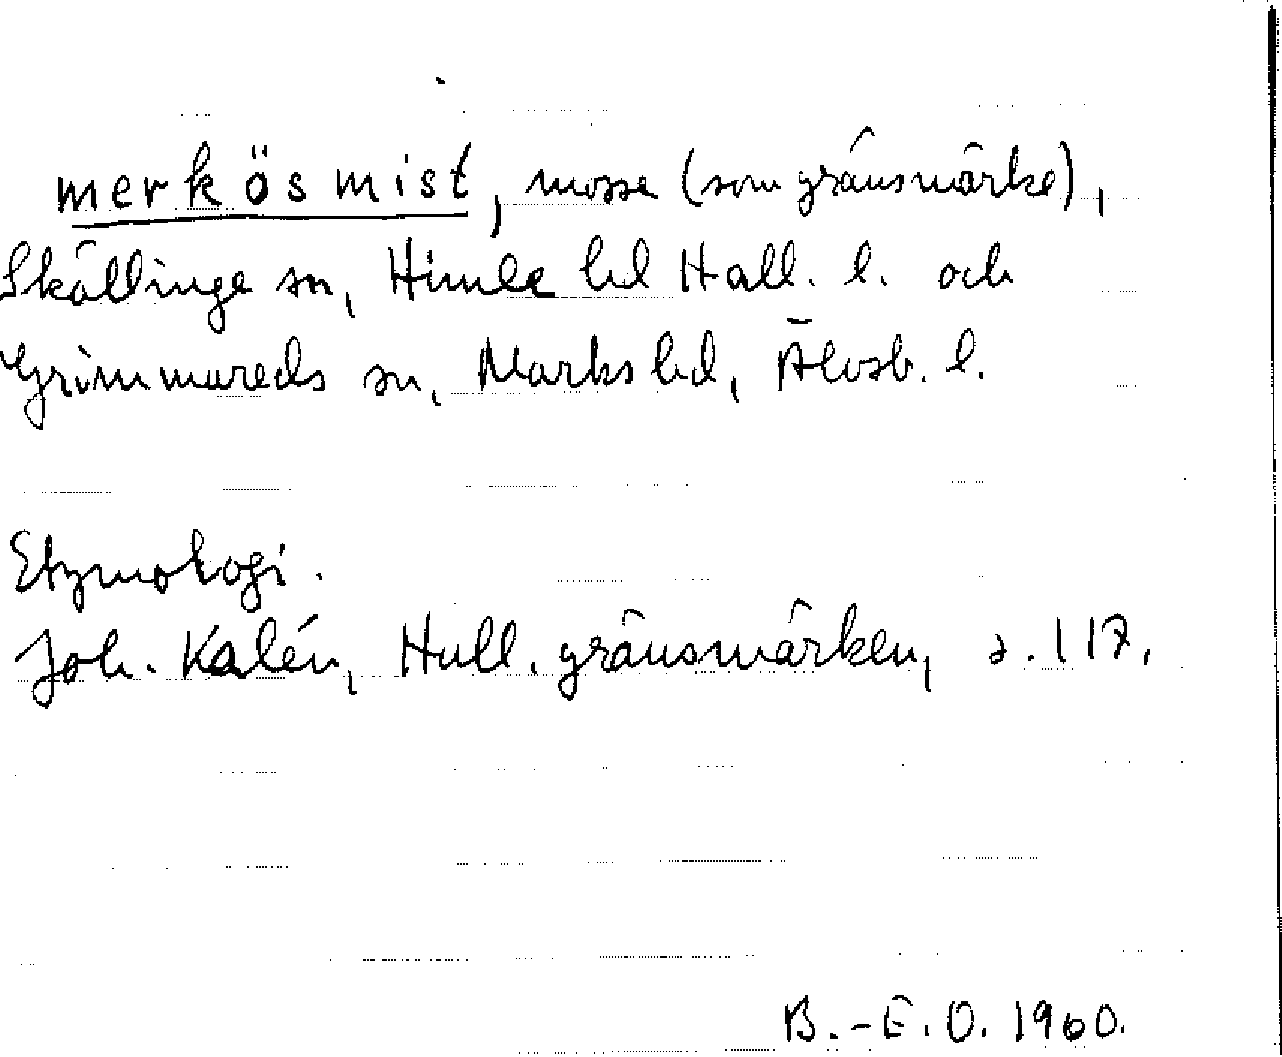 merkösmist, mosse (som gränsmärke),
Skällinge sn, Himle hd Hall. l. och
Grimmareds sn, Marks hd, Älvsb. l.
Etymologi.
Joh. Kalén, Hall. gränsmärken, s. 117.
B.-E.O. 1960.